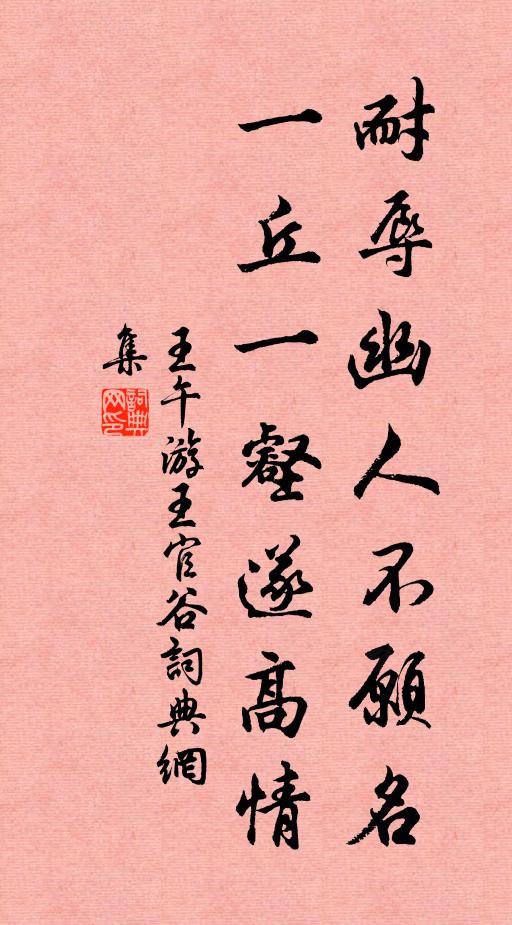 耐辱幽人不願名
一丘一壑遂高情
王午游王官谷詞典網
集
詞典
网印